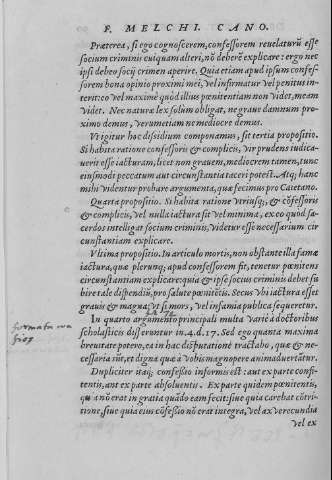 F. MELCHI. CANO.
Præterea, si ego cognoscerem, confessorem reuelaturũ esse
socium criminis cuiquam alteri, nõ deberẽ explicare: ergo nec
ipsi debeo socij crimen aperire. Quia etiam apud ipsum confes-
sorem bona opinio proximi mei, vel infirmatur vel penitus in-
terit: eo vel maximè quòd illius pœnitentiam non videt, meam
videt. Nec natura lex solùm obligat, ne graue damnum pro-
ximo demus, verumetiam ne mediocre demus.
Vt igitur hoc dissidium componamus, sit tertia propositio.
Si habita ratione confessoris & complicis, vir prudens iudica-
uerit esse iacturam, licet non grauem, mediocrem tamen, tunc
eiusmodi peccatum aut circunstantia taceri potest. Atq; hanc
mihi videntur probare argumenta, quæ fecimus pro Caietano.
Quarta propositio. Si habita ratione vtriusq; & cõfessoris
& complicis, vel nulla iactura sit vel minima, ex eo quod sa-
cerdos intelligat socium criminis, videtur esse necessarium cir
cunstantiam explicare.
Vltima propositio. In articulo mortis, non obstante illa famæ
iactura, quæ plerunq; apud confessorem fit, tenetur pœnitens
circunstantiam explicare: quia & ipse socius criminis debet su
bire tale dispendiũ, pro salute pœnitẽtis. Secus vbi iactura esset
grauis & magna: vt si mors, vel infamia publica sequeretur.
In quarto argumento principali multa variè à doctoribus
scholasticis differuntur in .4.d.17. Sed ego quanta maxima
breuitate potero, ea in hac disputatione tractabo, quæ & ne-
cessaria sũt, et digna quæ à vobis magnopere animaduertãtur.
Dupliciter itaq; confessio informis est: aut ex parte confi-
tentis, aut ex parte absoluentis. Ex parte quidem pœnitentis,
quia nõ erat in gratia quãdo eam fecit: siue quia carebat cõtri-
tione, siue quia eius cõfessio nõ erat integra, vel ax verecundia
vel ex